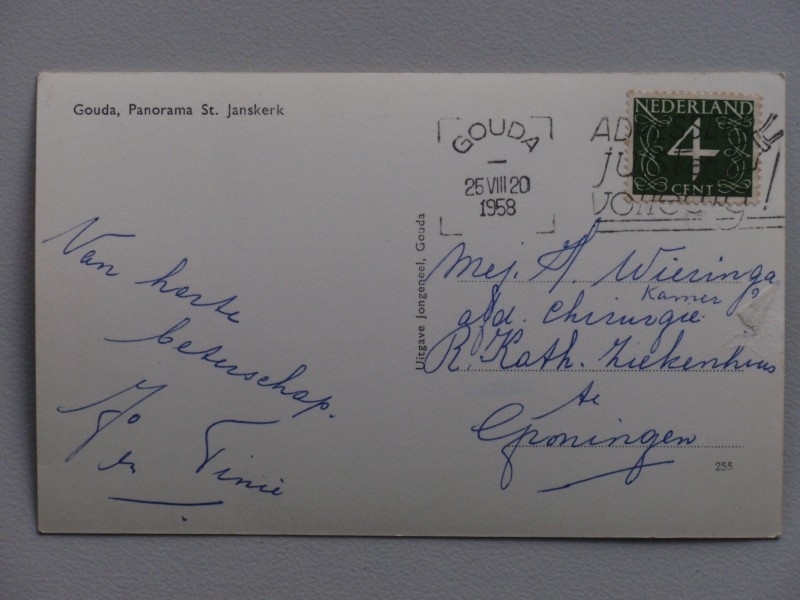 Gouda, Panorama St. Janskerk
GOUDA
25 VIII 20
1958
NEDERLAND
4
CENT
Van harte
beterschap.
Jo
en Tinie
Uitgave Jongeneel, Gouda
Mej. A. Wieringa
Kamer
afd. Chirurgie
R. Kath. Ziekenhuis
te
Groningen
255